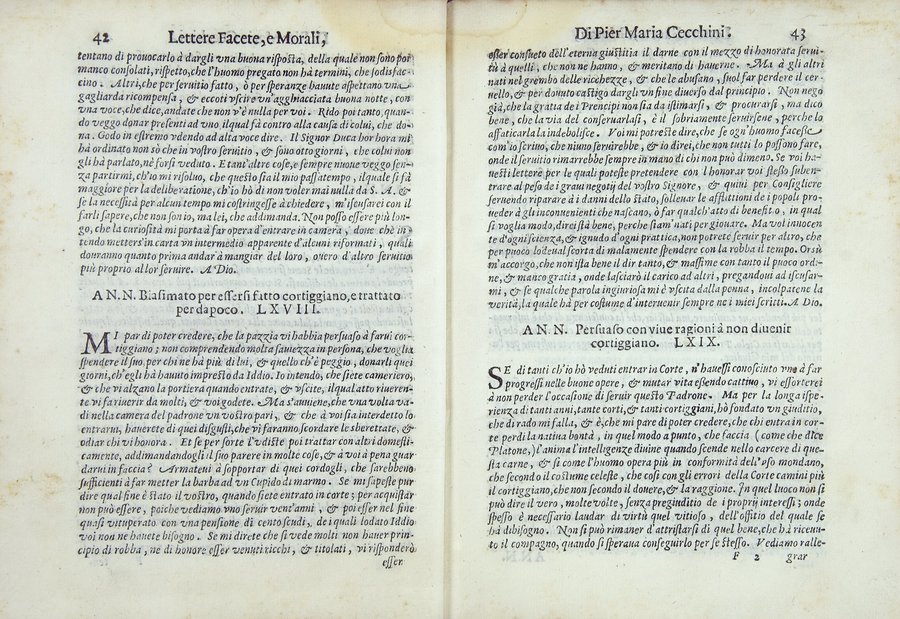 42 Lettere Facete, e Morali,
tentano di prouocarlo à dargli vna buona risposta, della quale non sono poi
manco consolati, rispetto, che l'huomo pregato non hà termini, che sodisfac-
cino. Altri, che per seruitio fatto, ò per speranze hauute aspettano vna
gagliarda ricompensa, & eccoti vscire vn'agghiacciata buona notte, con
vna voce, che dice, andate che non v'è nulla per voi. Rido poi tanto, quan-
do veggo donar presenti ad vno, il qual fà contro alla causa di colui, che do-
na. Godo in estremo vdendo ad alta voce dire. Il Signor Duca hor hora mi
hà ordinato non sò che in vostro seruitio, & sono otto giorni, che colui non
gli hà parlato, nè forsi veduto. E tant'altre cose, e sempre nuoue veggo sen-
za partirmi, ch'io mi risoluo, che questo sia il mio passatempo, il quale si fà
maggiore per la deliberatione, ch'io hò di non voler mai nulla da S. A. &
se la necessità per alcun tempo mi costringesse à chiedere, m'iscusarei con il
farli sapere, che non son io, ma lei, che addimanda. Non posso essere più lon-
go, che la curiosità mi porta à far opera d'entrare in camera, doue chè in-
tendo metters'in carta vn intermedio apparente d'alcuni riformati, quali
douranno quanto prima andar à mangiar del loro, ouero d'altro seruitio
più proprio al lor seruire. A Dio.
A N. N. Biasimato per essersi fatto cortiggiano, e trattato
per dapoco. LXVIII.
MI par di poter credere, che la pazzia vi habbia persuaso à farui cor-
tiggiano; non comprendendo molta sauiezza in persona, che voglia
spendere il suo, per chi ne hà più di lui, & quello ch'è peggio, donarli quei
giorni, ch'egli hà hauuto imprestо da Iddio. Io intendo, che siete cameriero,
& che vi alzano la portiera quando entrate, & vscite, il qual atto riueren-
te vi fà riuerir da molti, & voi godete. Ma s'auuiene, che vna volta va-
di nella camera del padrone vn vostro pari, & che à voi sia interdetto lo
entrarui, hauerete di quei disgusti, che vi faranno scordare le sberettate, &
odiar chi vi honora. Et se per sorte l'vdiste poi trattar con altri domesti-
camente, addimandandogli il suo parere in molte cose, & à voi à pena guar
darui in faccia? Armateui à sopportar di quei cordogli, che sarebbeno
sufficienti à far metter la barba ad vn Cupido di marmo. Se mi sapeste pur
dire qual fine è stato il vostro, quando siete entrato in corte; per acquistar
non può essere, poiche vediamo vno seruir vent'anni, & poi esser nel fine
quasi vituperato con vna pensione di cento scudi, de i quali lodato Iddio
voi non ne hauete bisogno. Se mi direte che si vede molti non hauer prin-
cipio di robba, ne di honore esser venuti ricchi, & titolati, vi risponderò
esser
Di Pier Maria Cecchini. 43
esser consueto dell'eterna giustitia il darne con il mezzo di honorata serui-
tù à quelli, che non ne hanno, & meritano di hauerne. Ma à gli altri
nati nel grembo delle ricchezze, & che le abusano, suol far perdere il cer-
uello, & per douuto castigo dargli vn fine diuerso dal principio. Non nego
già, che la gratia de i Prencipi non sia da istimarsi, & procurarsi, ma dico
bene, che la via del conseruarlasi, è il sobriamente seruirsene, perche lo
affaticarla indebolisce. Voi mi potreste dire, che se ogn'huomo facesse
com'io scriuo, che niuno seruirebbe, & io direi, che non tutti lo possono fare,
onde il seruitio rimarrebbe sempre in mano di chi non può dimeno. Se voi ha-
uesti lettere per le quali poteste pretendere con l'honorar voi stesso suben-
trare al peso de i graui negotij del vostro Signore, & quiui per Consigliere
seruendo riparare à i danni dello stato, solleuar le afflittioni de i popoli pro-
ueder à gli inconuenienti che nascano, ò far qualch'atto di benefitio, in qual
si voglia modo, direi stà bene, perche siam nati per giouare. Ma voi innocen
te d'ogni scienza, & ignudo d'ogni prattica, non potrete seruir per altro, che
per puoco lodeuol scorta di malamente spendere con la robba il tempo. Orsù
m'accorgo, che non istà bene il dir tanto, & massime con tanto il puoco ordi-
ne, & manco gratia, onde lasciarò il carico ad altri, pregandoui ad iscusar-
mi, & se qualche parola ingiuriosa mi è vscita dalla penna, incolpatene la
verità, la quale hà per costume d'interuenir sempre ne i miei scritti. A Dio.
A N. N. Persuaso con viue ragioni à non diuenir
cortiggiano. LXIX.
SE di tanti ch'io hò veduti entrar in Corte, n'hauessi conosciuto vno à far
progressi nelle buone opere, & mutar vita essendo cattiuo, vi essorterei
à non perder l'occasione di seruir questo Padrone. Ma per la longa ispe-
rienza di tanti anni, tante corti, & tanti cortiggiani, hò fondato vn giuditio,
che di rado mi falla, & è, che mi pare di poter credere, che chi entra in cor-
te perdi la natiua bontà, in quel modo à punto, che faccia (come che dice
Platone,) l'anima l'intelligenze diuine quando scende nello carcere di que-
sta carne, & si come l'huomo opera più in conformità dell'vso mondano,
che secondo il costume celeste, che così con gli errori della Corte camini più
il cortiggiano, che non secondo il douere, & la raggione. In quel luoco non si
può dire il vero, molte volte, senza pregiuditio de i proprij interessi; onde
spesso è necessario laudar di virtù quel vitioso, dell'offitio del quale si
hà di bisogno. Non si può rimaner d'attristarsi di quel bene, che hà riceuu-
to il compagno, quando si speraua conseguirlo per se stesso. Vediamo ralle-
F 2 grar